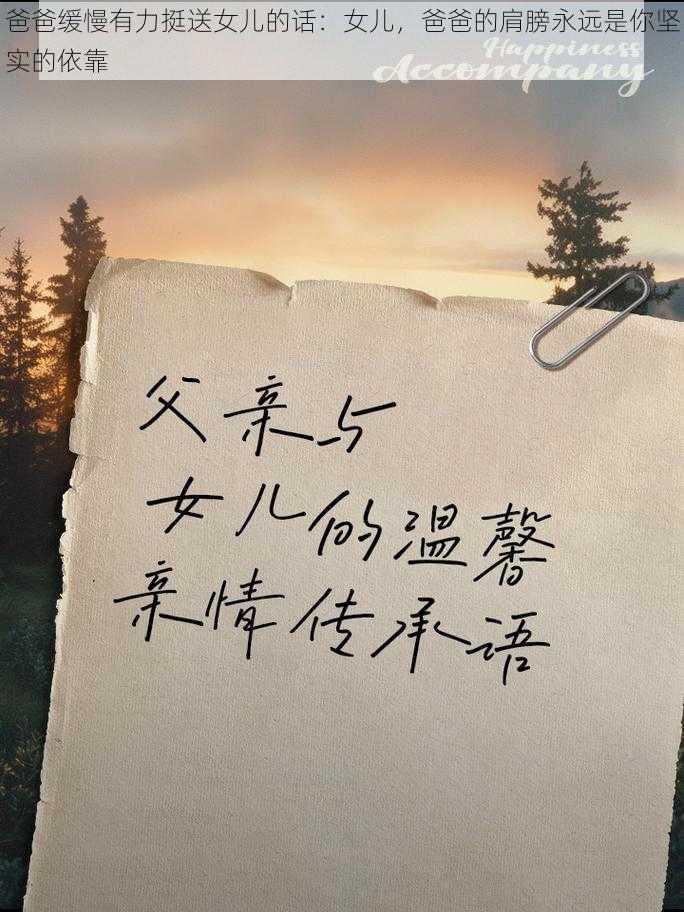 爸爸缓慢有力挺送女儿的话：女儿，爸爸的肩膀永远是你坚
实的依靠
Happiness
Accompany
父亲与
女儿的温馨
亲情传承语